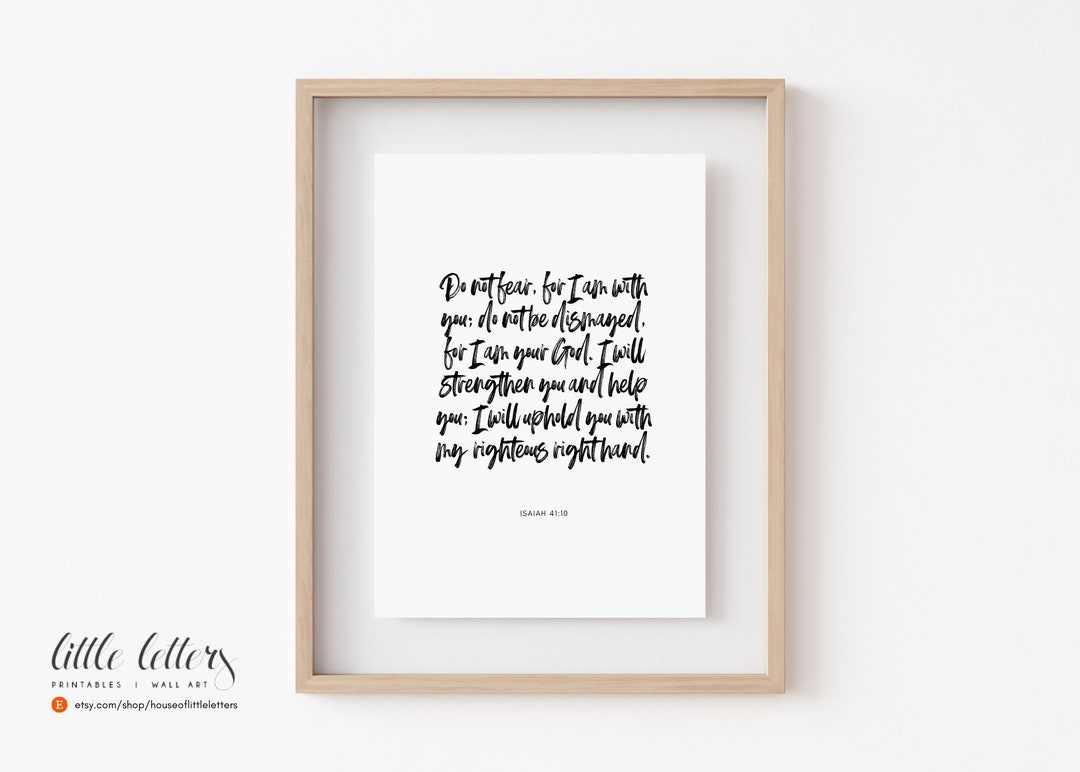 Do not fear, for I am with
you; do not be dismayed,
for I am your God. I will
strengthen you and help
you; I will uphold you with
my righteous right hand.
ISAIAH 41:10
little letters
PRINTABLES | WALL ART
E etsy.com/shop/houseoflittleletters